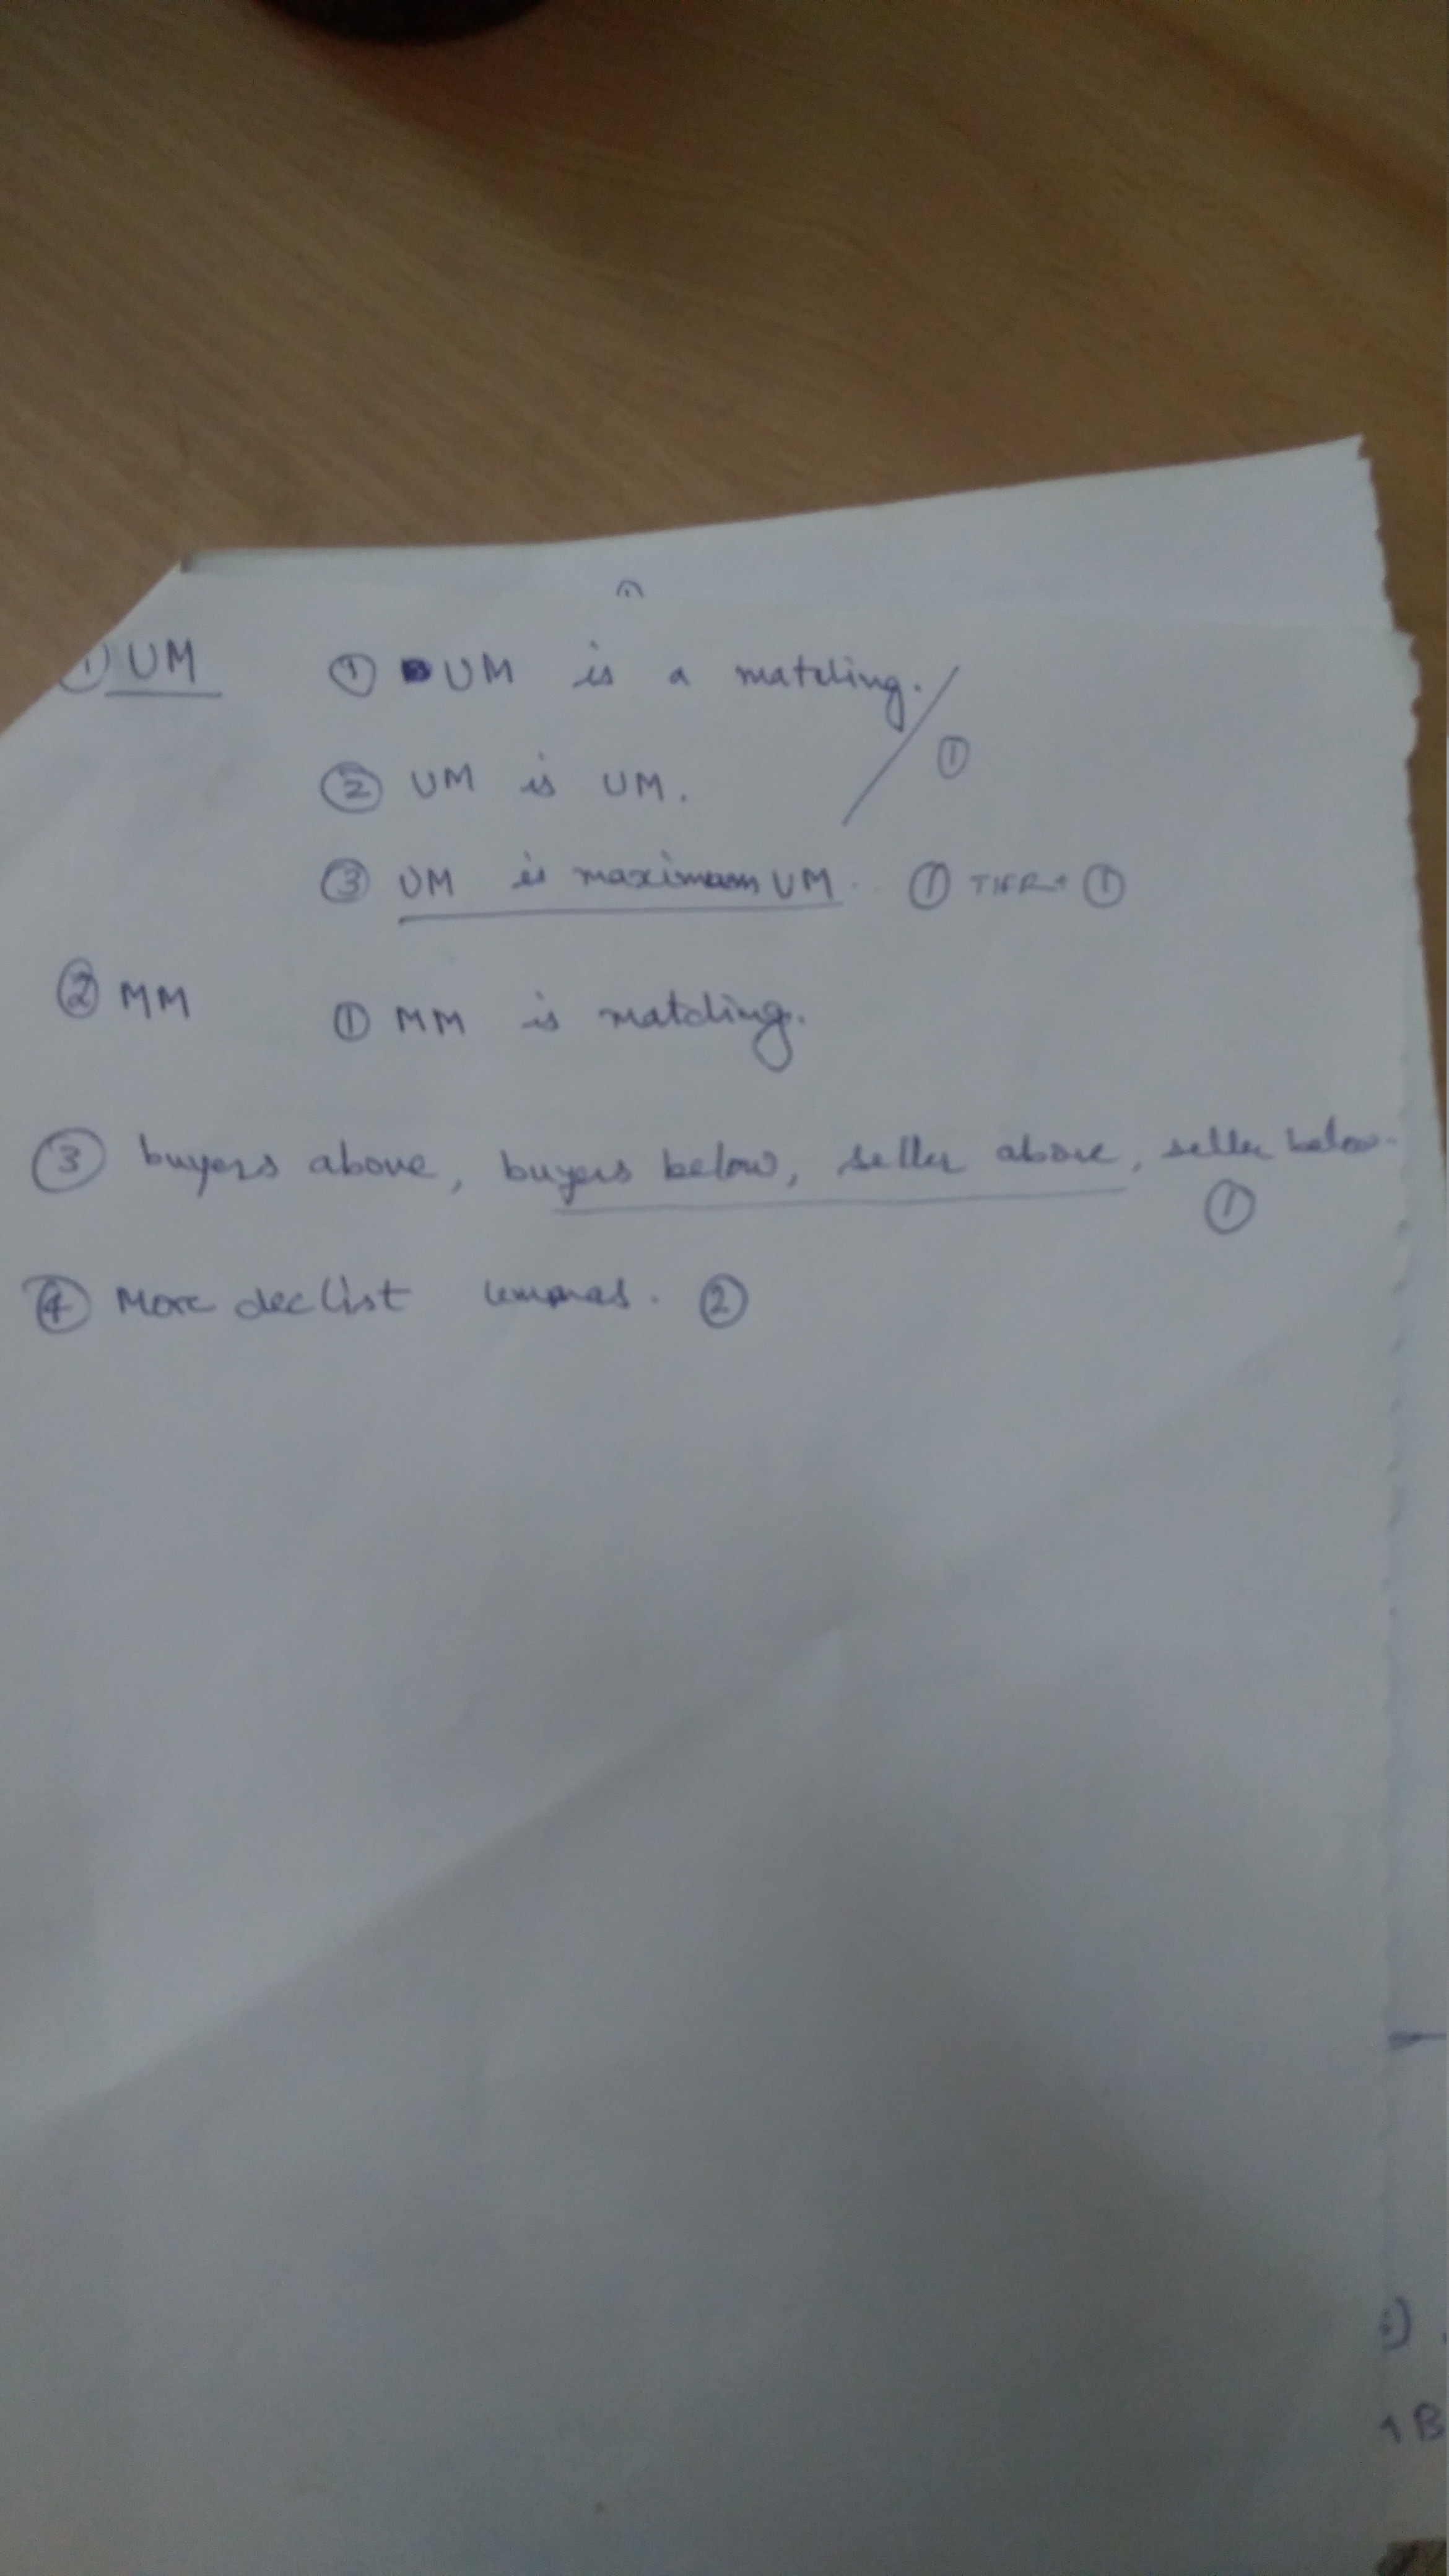 ① UM ① UM is a matching.
② UM is UM. ①
③ UM is maximam UM. ① TIFR ①
② MM ① MM is matching.
③ buyers above, buyers below, seller above, seller below.
①
④ More declist lemmas. ②